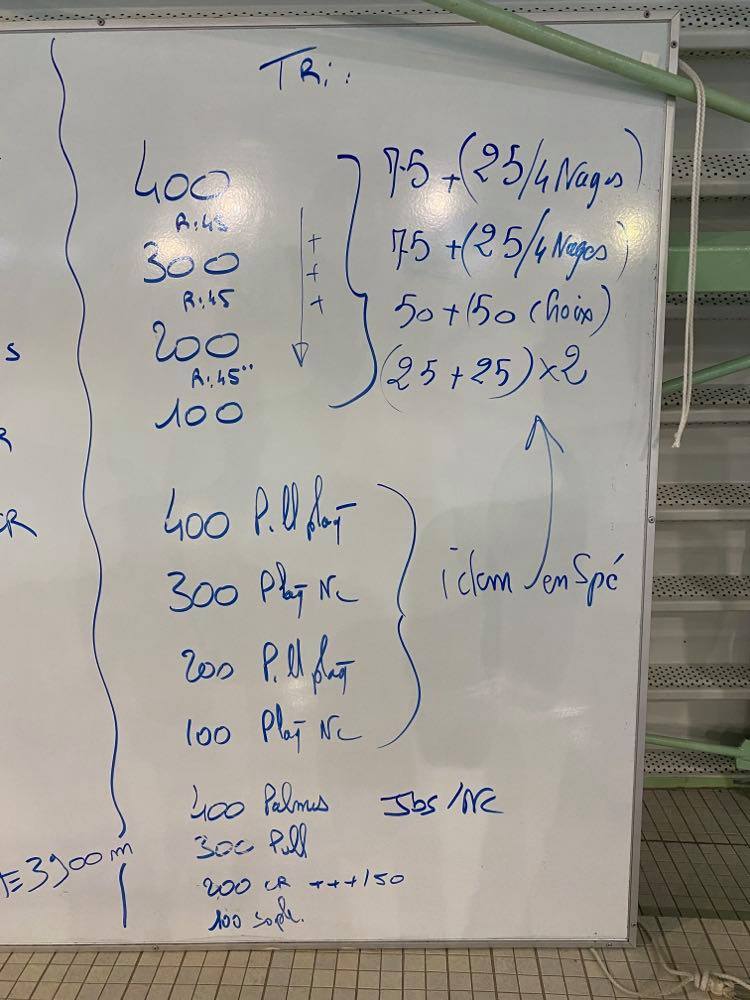 TRi :
400
R:45
300
R:45
200
R:45"
100
+
+
+
75 + (25/4 Nages)
75 + (25/4 Nages)
50 + (50 Choix)
(25 + 25) x2
400 Pull plaq
300 Plaq NC
200 Pull plaq
100 Plaq NC
idem en Spé
400 Palmes Jbs/NC
300 Pull
200 CR +++/50
100 sople.
S
R
CR
3900 m